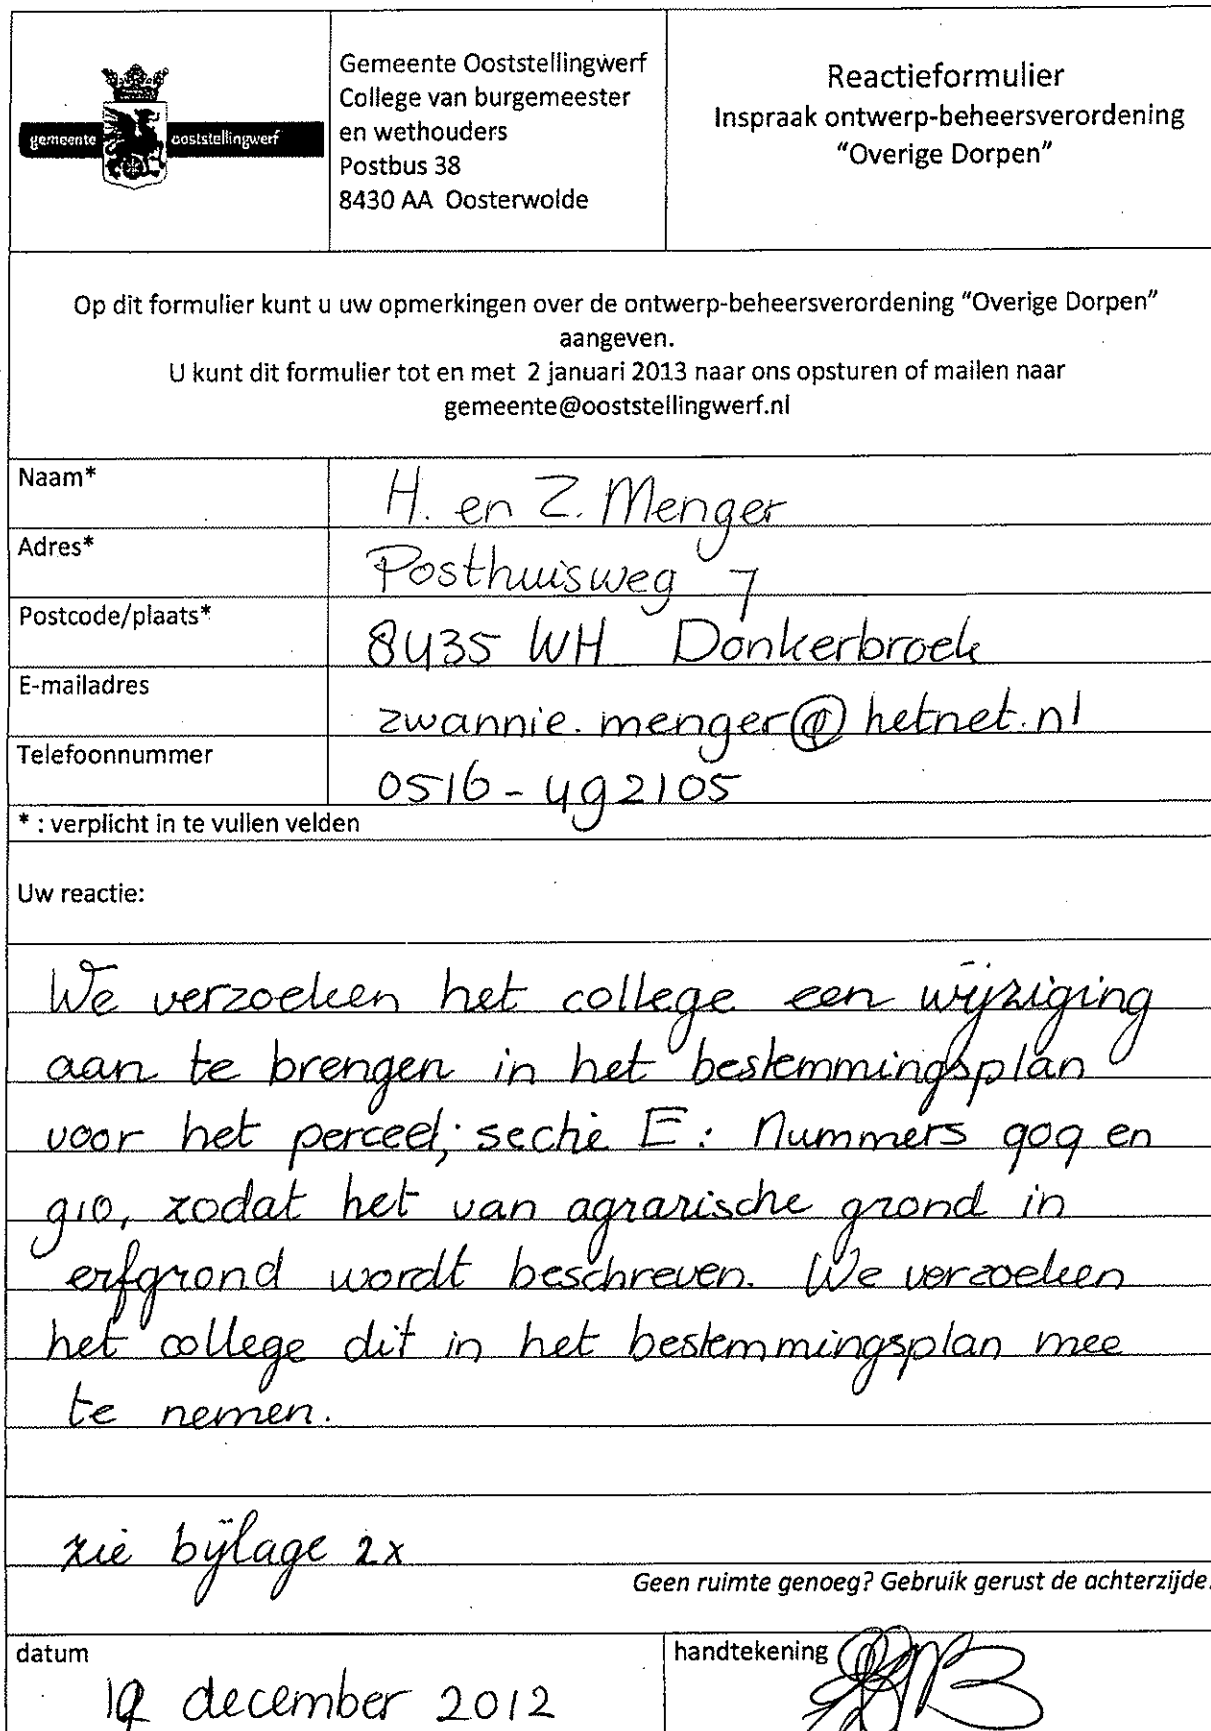 gemeente ooststellingwerf
Gemeente Ooststellingwerf
College van burgemeester
en wethouders
Postbus 38
8430 AA Oosterwolde
Reactieformulier
Inspraak ontwerp-beheersverordening
“Overige Dorpen”
Op dit formulier kunt u uw opmerkingen over de ontwerp-beheersverordening “Overige Dorpen”
aangeven.
U kunt dit formulier tot en met 2 januari 2013 naar ons opsturen of mailen naar
gemeente@ooststellingwerf.nl
Naam* H. en Z. Menger
Adres* Posthuisweg 7
Postcode/plaats* 8435 WH Donkerbroek
E-mailadres zwannie.menger@hetnet.nl
Telefoonnummer 0516-492105
* : verplicht in te vullen velden
Uw reactie:
We verzoeken het college een wijziging
aan te brengen in het bestemmingsplan
voor het perceel; sectie E: nummers 909 en
910, zodat het van agrarische grond in
erfgrond wordt beschreven. We verzoeken
het college dit in het bestemmingsplan mee
te nemen.
zie bijlage 2x
Geen ruimte genoeg? Gebruik gerust de achterzijde.
datum
december 2012
handtekening